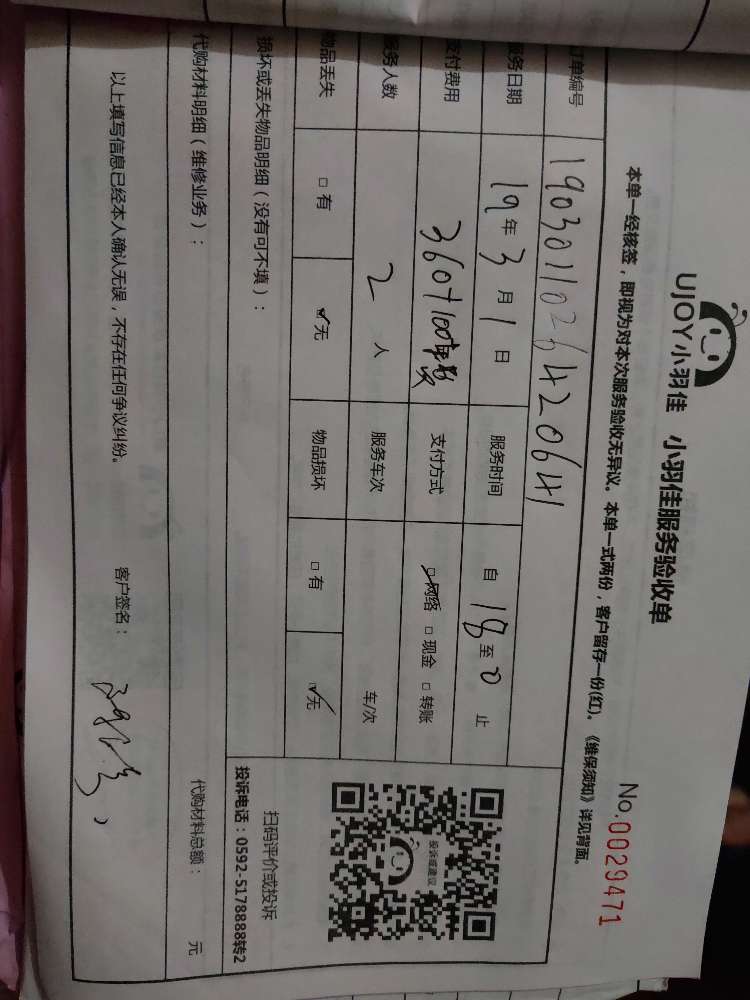 UJOY小羽佳 小羽佳服务验收单
No.0029471
本单一经核签，即视为对本次服务验收无异议。本单一式两份，客户留存一份(红)。《维保须知》详见背面。
订单编号 1903011026420641
服务日期 19年3月1日 服务时间 自 18 至 止
支付费用 360+100车费 支付方式 ☑网络 □现金 □转账
服务人数 2 人 服务车次 车/次
物品丢失 □有 ☑无 物品损坏 □有 ☑无
投诉或建议
扫码评价或投诉
投诉电话：0592-5178888转2
损坏或丢失物品明细（没有可不填）：
代购材料明细（维修业务）： 代购材料总额： 元
以上填写信息已经本人确认无误，不存在任何争议纠纷。 客户签名：